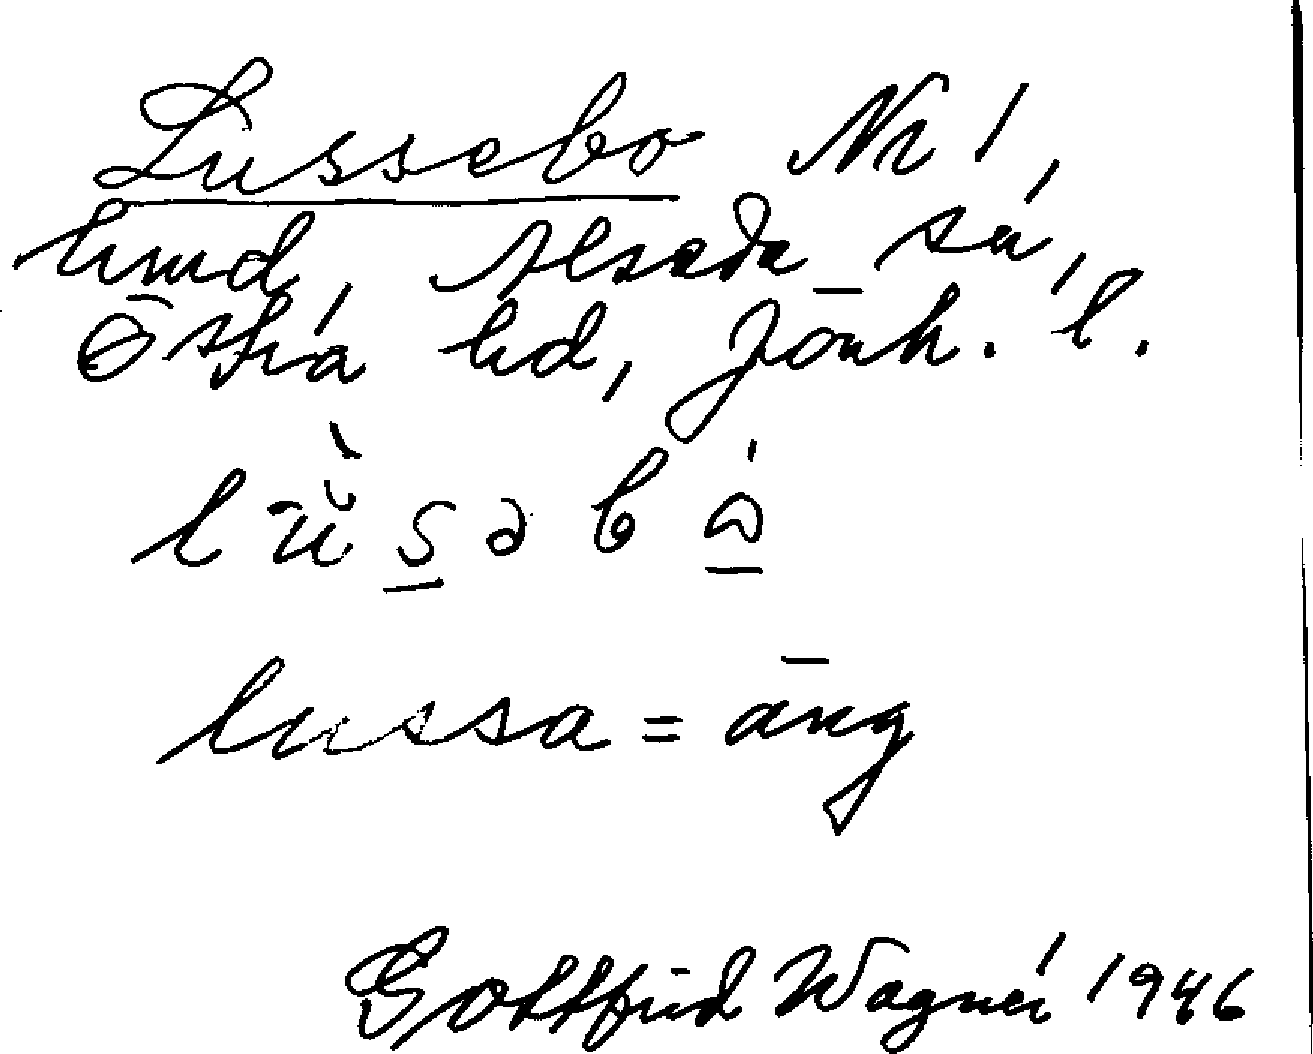 Lussebo Nr 1,
hmd, Alseda sn,
Östra hd, Jönk. l.
lùsəbó
lussa = äng
Gottfrid Wagnér 1946